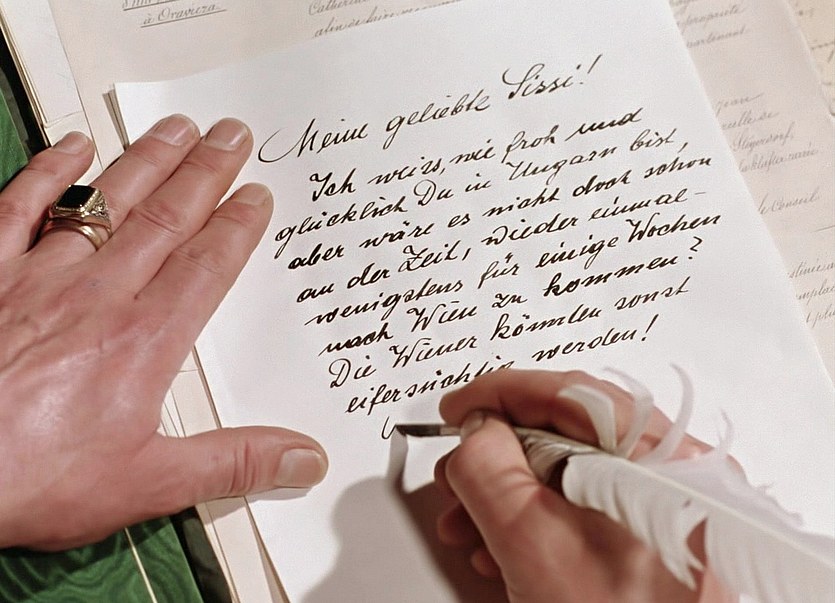 à Oravicza.
Meine geliebte Sissi!
Ich weiss, wie froh und
glücklich Du in Ungarn bist,
aber wäre es nicht doch schon
an der Zeit, wieder einmal -
wenigstens für einige Wochen
nach Wien zu kommen?
Die Wiener könnten sonst
eifersüchtig werden!